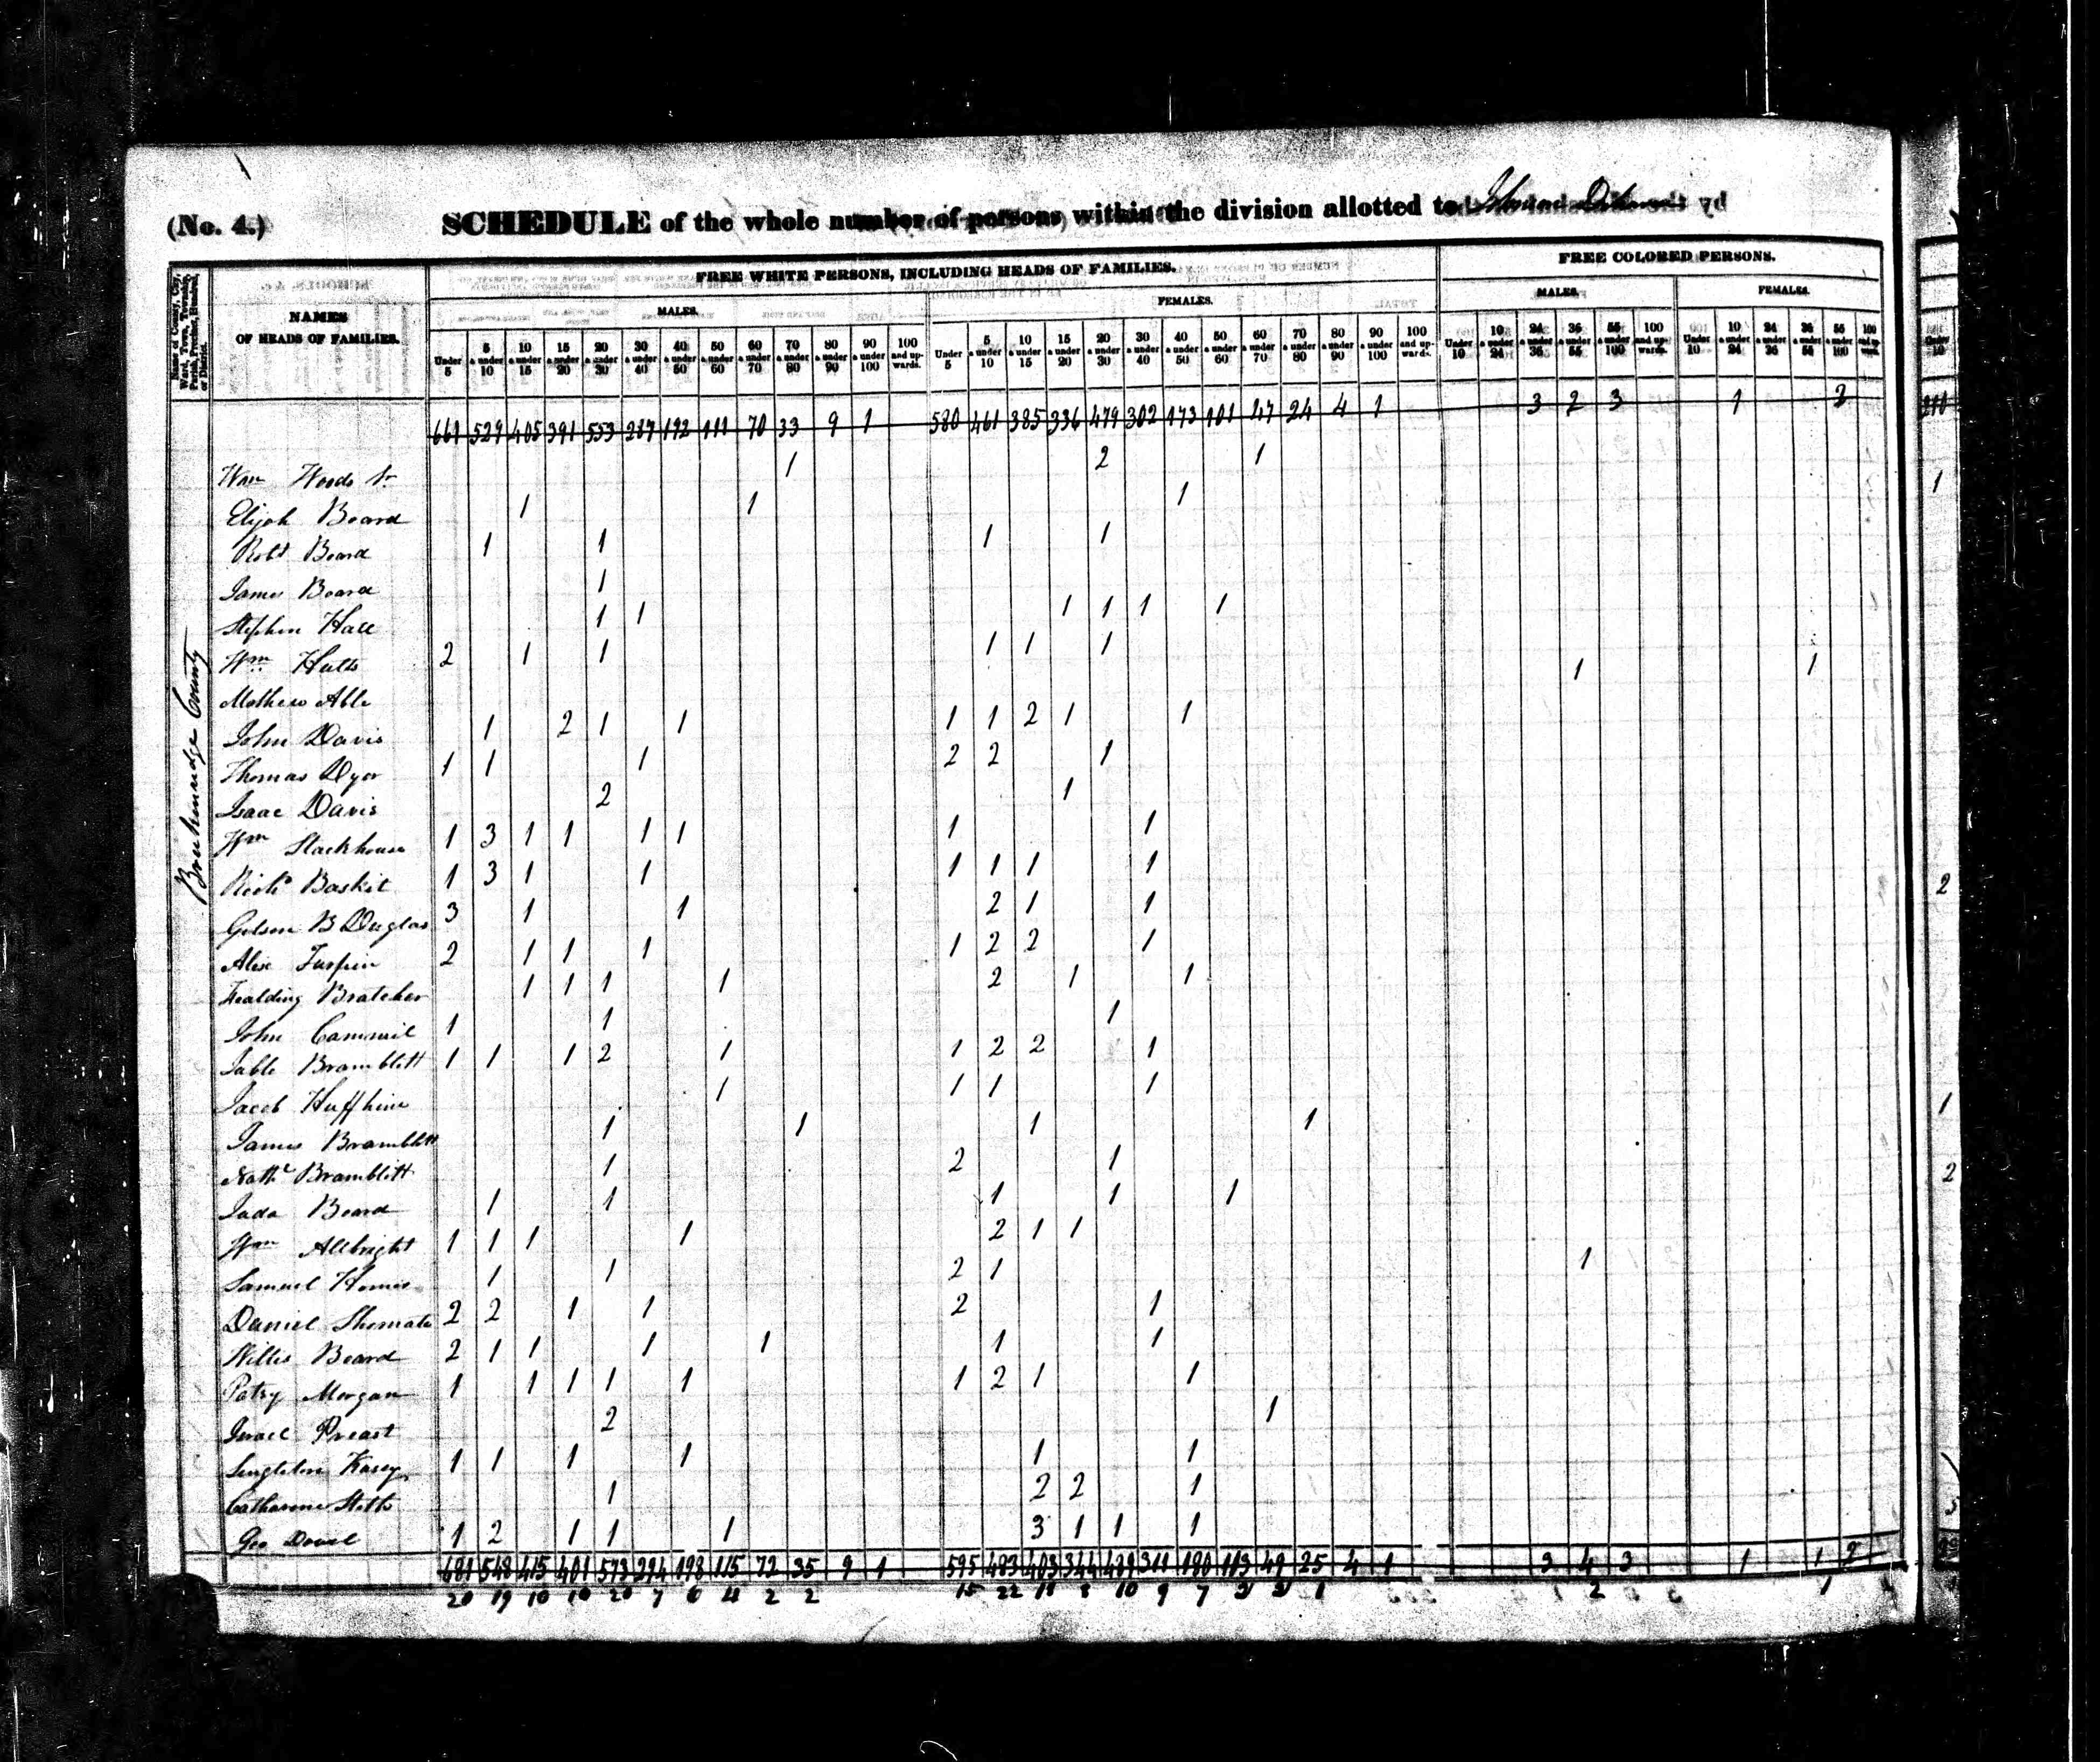 (No. 4.) SCHEDULE of the whole number of persons within the division allotted to
FREE WHITE PERSONS, INCLUDING HEADS OF FAMILIES. FREE COLORED PERSONS.
MALES. FEMALES. MALES. FEMALES.
Name of County, City, Ward, Town, Township, Parish, Precinct, Hundred, or District.
NAMES OF HEADS OF FAMILIES.
Under 5 5 & under 10 10 & under 15 15 & under 20 20 & under 30 30 & under 40 40 & under 50 50 & under 60 60 & under 70 70 & under 80 80 & under 90 90 & under 100 100 and upwards. Under 5 5 & under 10 10 & under 15 15 & under 20 20 & under 30 30 & under 40 40 & under 50 50 & under 60 60 & under 70 70 & under 80 80 & under 90 90 & under 100 100 and upwards. Under 10 10 & under 24 24 & under 36 36 & under 55 55 & under 100 100 and upwards. Under 10 10 & under 24 24 & under 36 36 & under 55 55 & under 100 100 and upwards.
661 529 405 391 553 287 192 111 70 33 9 1 580 461 385 336 479 302 173 101 47 24 4 1 3 2 3 1 2
Breckenridge County
Wm Woods Sr 1 2 1
Elijah Beard 1 1 1
Robt Beard 1 1 1 1
James Beard 1
Stephen Hall 1 1 1 1 1 1
Wm 2 1 1 1 1 1
Mathew Able 1 1
John Davis 1 2 1 1 1 1 2 1 1
Thomas Dyer 1 1 1 2 2 1
Isaac Davis 2 1
Wm Stackhouse 1 3 1 1 1 1 1 1
Baskit 1 3 1 1 1 1 1 1
B Duglas 3 1 1 2 1 1
Alex Turpin 2 1 1 1 1 2 2 1
Fealding Bratcher 1 1 1 1 2 1 1
John Cammil 1 1 1
Bramblett 1 1 1 2 1 1 2 2 1
Jacob Huffhine 1 1 1 1
James Bramblett 1 1 1 1
Nathl Bramblitt 1 2 1
Beard 1 1 1 1 1
Wm Allbright 1 1 1 1 2 1 1
Samuel 1 1 2 1 1
Daniel Shomate 2 2 1 1 2 1
Willis Beard 2 1 1 1 1 1 1
Patsy Morgan 1 1 1 1 1 1 2 1 1
Israel Preast 2 1
Singleton Kasey 1 1 1 1 1 1
Catharine Stith 1 2 2 1
Geo Dowel 1 2 1 1 1 3 1 1 1
681 548 415 401 573 294 198 115 72 35 9 1 595 483 403 344 489 311 180 113 49 25 4 1 3 4 3 1 1 2
20 19 10 10 20 7 6 4 2 2 15 22 18 8 10 9 7 1 2 1